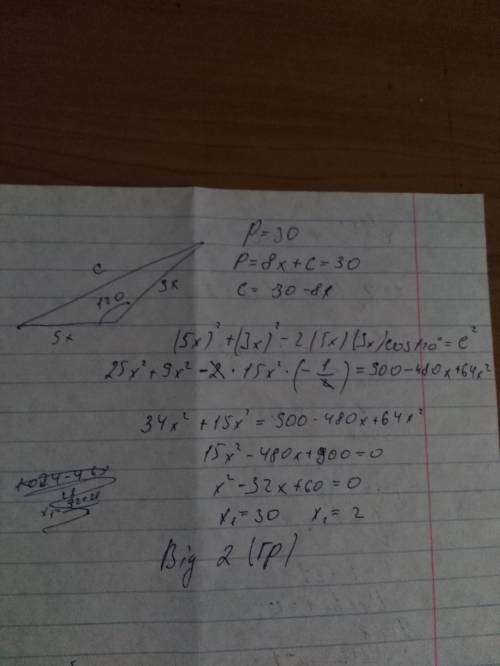 P=30
P=8x+c=30
c=30-8x
c
120
3x
5x
(5x)²+(3x)²-2(5x)(3x)cos120°=c²
25x²+9x²-2·15x²·(-1/2)=900-480x+64x²
34x²+15x²=900-480x+64x²
15x²-480x+900=0
x²-32x+60=0
x₁=30 x₁=2
Від 2 (Гр)